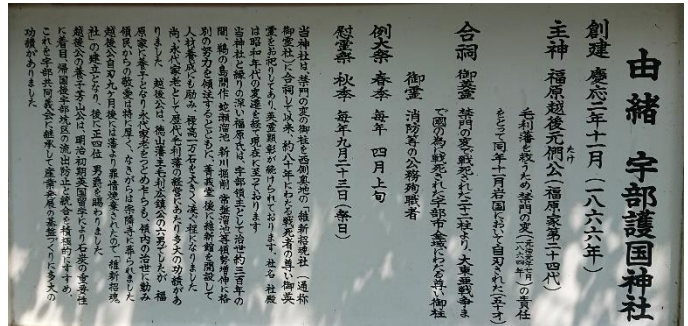 由緒 宇部護国神社
創建 慶応二年十一月(一八六六年)
主神 福原越後元僴公(福原家第二十四代)
たけ
毛利藩を救うため、禁門の変(元治元年七月 一八六四年)の責任
をとって同年十一月岩国において自刃された(五十才)
合祠 御英霊 禁門の変で戦死された二十二柱より、大東亜戦争ま
で國の為に戦死された宇部市全域にわたる尊い御柱
御霊 消防等の公務殉職者
例大祭 春季 毎年 四月上旬
慰霊祭 秋季 毎年九月二十三日(祭日)
当神社は禁門の変の御柱を西側裏地の「維新招魂社」(通称
御霊社)に合祠して以来、約八十年にわたる戦死者の尊い御英
霊をお祀りしてあり、英霊顕彰が続けられております。社名、社殿
は昭和年代の変遷を経て現在に至っております
当神社と縁りの深い福原氏は、宇部領主として治世約三百年の
間、鵜の島開作、蛇瀬溜池、新川掘削、常盤溜池等領勢増伸に格
別の努力を傾注するとともに、菁莪堂後に維新館を開設して
人材養成にも励み、禄高一万石を大きく凌ぐ程になりました
尚、永代家老として歴代毛利藩の経営にあたり多大の功績があ
りました 越後公は、徳山藩主毛利広鎮公の六男でしたが 福
原家に養子となり永代家老をつとめ乍らも、領内の治世に励み
領民からの敬愛は特に厚く、なきがらは宗隣寺に葬られました
越後公自刃九ヶ月後には藩より罪情宥免されたので「維新招魂
社」の建立となり、後に正四位 男爵を賜わりました
越後公の養子芳山公は、明治初期英国留学により石炭の重要性
に着目、帰国後宇部炭区の流出防止と統合を積極的にすすめ、
これを宇部共同義会に継承して産業発展の基盤づくりに多大の
功績がありました